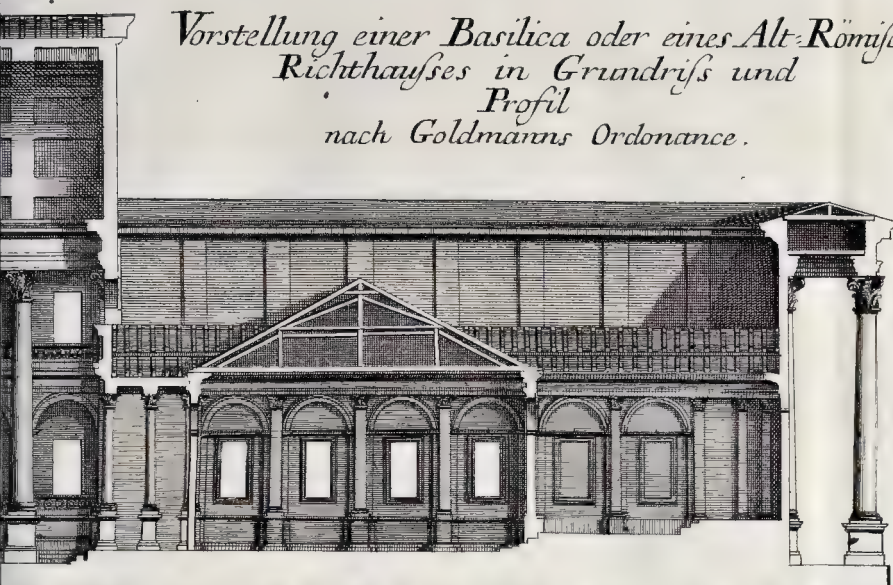 Vorstellung einer Basilica oder eines Alt=Römisc
Richthauſses in Grundriſs und
Profil
nach Goldmanns Ordonance.